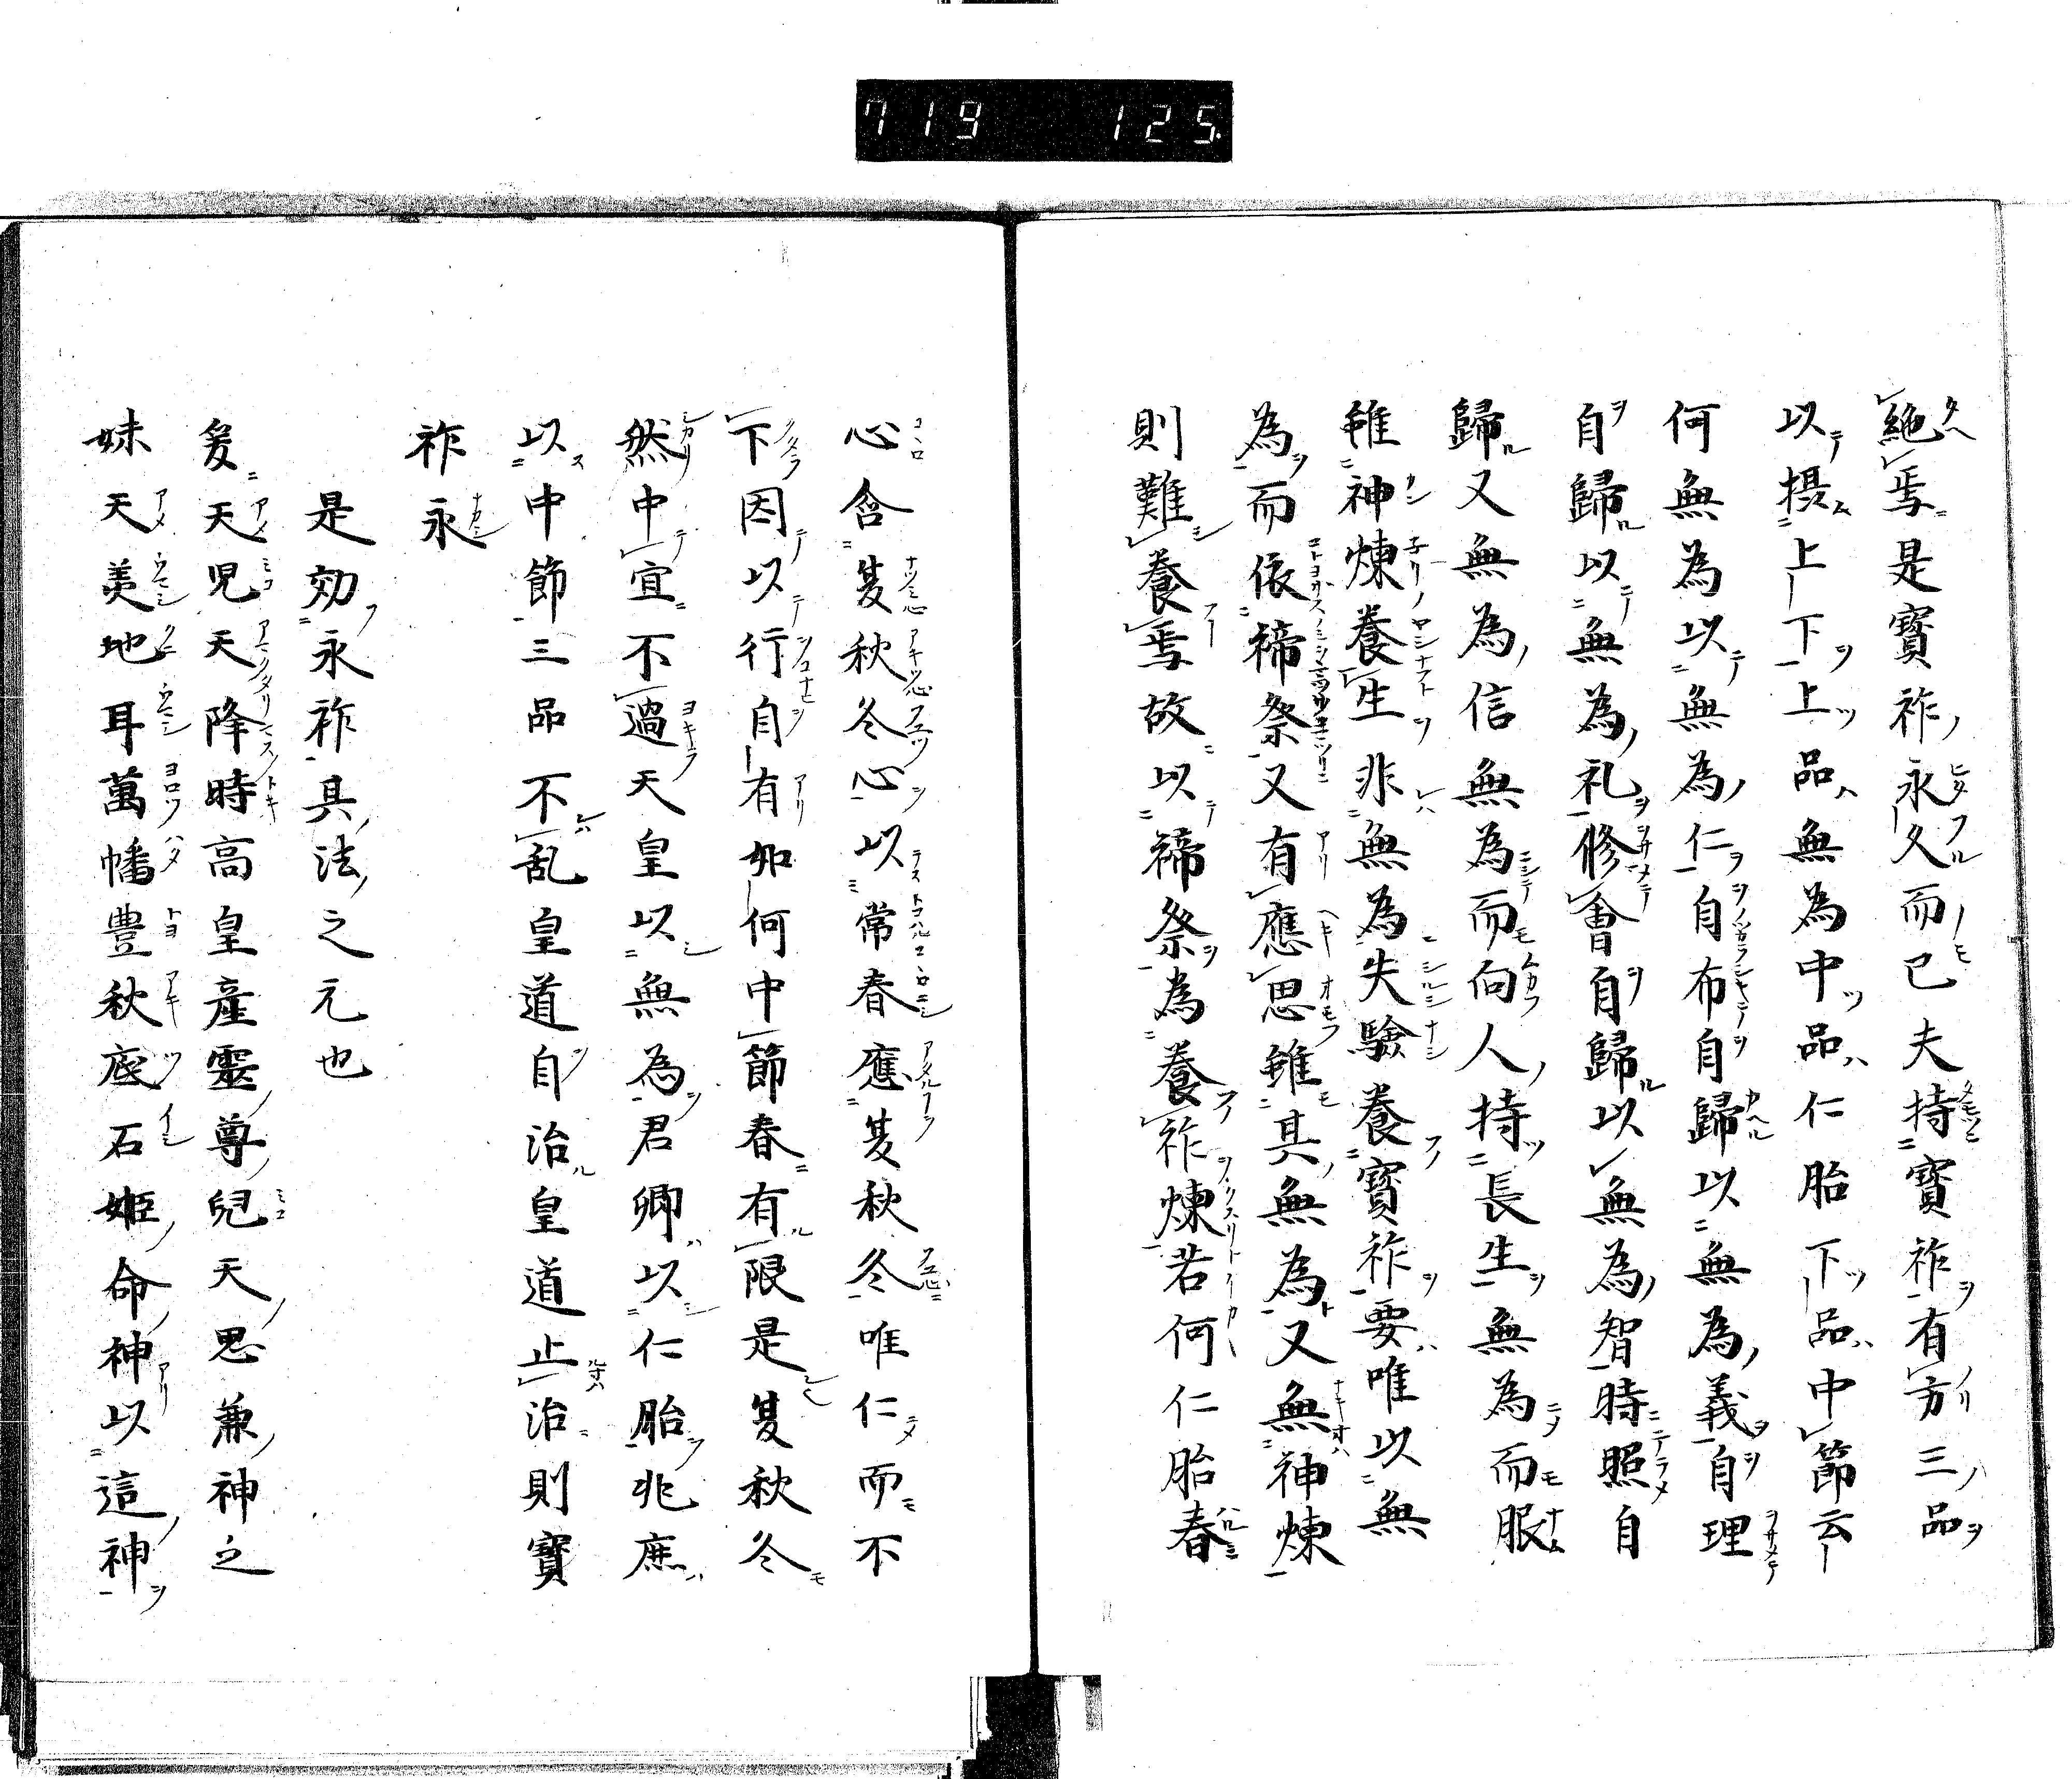 719 125
絶焉是寳祚永久而已夫持寳祚有方三品
以摂上下上品無為中品仁胎下品中節云
何無為以無為仁自布自歸以無為義自理
自歸以無為礼修會自歸以無為智時照自
歸又無為信無為而向人持長生無為而服
雖神煉養生非無為失驗養寳祚要唯以無
為而依禘祭又有應思雖其無為又無神煉
則難養焉故以禘祭為養祚煉若何仁胎春
心含夏秋冬心以常春應夏秋冬唯仁而不
下因以行自有如何中節春有限是夏秋冬
然中宜不過天皇以無為君卿以仁胎兆庶
以中節三品不乱皇道自治皇道止治則寳
祚永
是効永祚具法之元也
爰天児天降時高皇産靈尊兒天思兼神之
妹天美地耳萬幡豊秋底石姫命神以這神